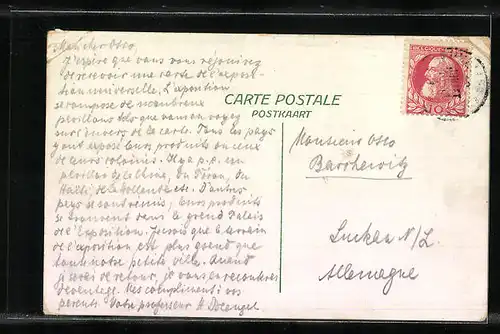 Mein cher Osco,
J'espère que vous vous réjouirez
de recevoir une carte de l'exposi-
tion universelle. L'exposition
se compose de nombreux
pavillons tels que vous en voyez
sur l'envers de la carte. Tous les pays
y ont exposé leurs produits ou ceux
de leurs colonies. Il y a p. e. un
pavillon de la Chine, du Pérou, du
Haïti, de la Hollende etc. D'autres
pays se sont réunis, leurs produits
se trouvent dans le grand Palais
de l'Exposition. Je crois que le terrain
de l'exposition est plus grand que
toute notre petite ville. Quand
je serai de retour, je vous en raconterai
davantage. Mes compliments à vos
parents. Votre professeur H.
CARTE POSTALE
POSTKAART
BELGIQUE
Monsieur Osco
Barchewitz
Luckau N/L.
Allemagne